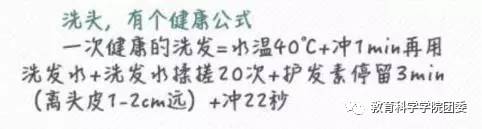 洗头,有个健康公式
一次健康的洗发=水温40℃+冲1min再用
洗发水+洗发水揉搓20次+护发素停留3min
(离头皮1-2cm远)+冲22秒
教育科学学院团委